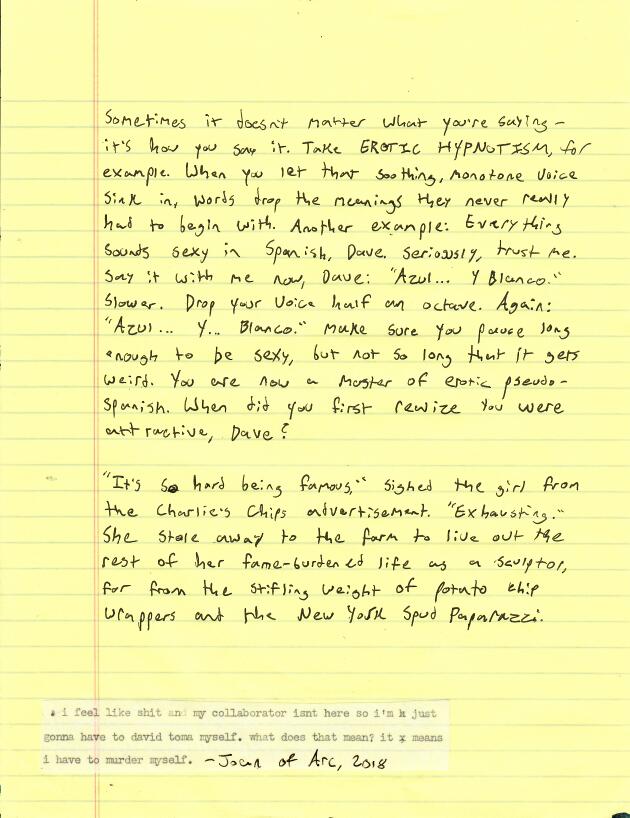 Sometimes it doesn't matter what you're saying –
it's how you say it. Take EROTIC HYPNOTISM, for
example. When you let that soothing, monotone voice
sink in, words drop the meanings they never really
had to begin with. Another example: Everything
sounds sexy in Spanish, Dave. Seriously, trust me.
Say it with me now, Dave: "Azul... Y Blanco."
Slower. Drop your voice half an octave. Again:
"Azul... Y... Blanco." Make sure you pause long
enough to be sexy, but not so long that it gets
weird. You are now a master of erotic pseudo-
Spanish. When did you first realize you were
attractive, Dave?
"It's so hard being famous," sighed the girl from
the Charlie's Chips advertisement. "Exhausting."
She stole away to the farm to live out the
rest of her fame-burdened life as a sculptor,
far from the stifling weight of potato chip
wrappers and the New York Spud Paparazzi.
i feel like shit and my collaborator isnt here so i'm k just
gonna have to david toma myself. what does that mean? it x means
i have to murder myself. – Joan of Arc, 2018